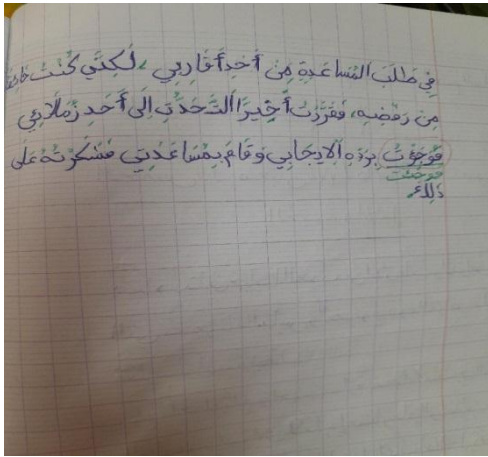 في طَلَبَ المُساعَدَةِ مِنْ أَحَدِ أَقَارِبِي، لَكِنَّنِي كُنْتُ خائِفَ
مِن رَفْضِهِ، فَقَرَّرْتُ أَخِيرَا التَّحَدُّثِ إِلَى أَحَدِ زُمَلَائِي
فَوْجَؤْتُ بِرَدِّهِ الايجَابِي وَقَامَ بِمُسَاعَدَتِي فَشَكَرْتُهُ عَلَى
فوجئت
ذَلِكَ